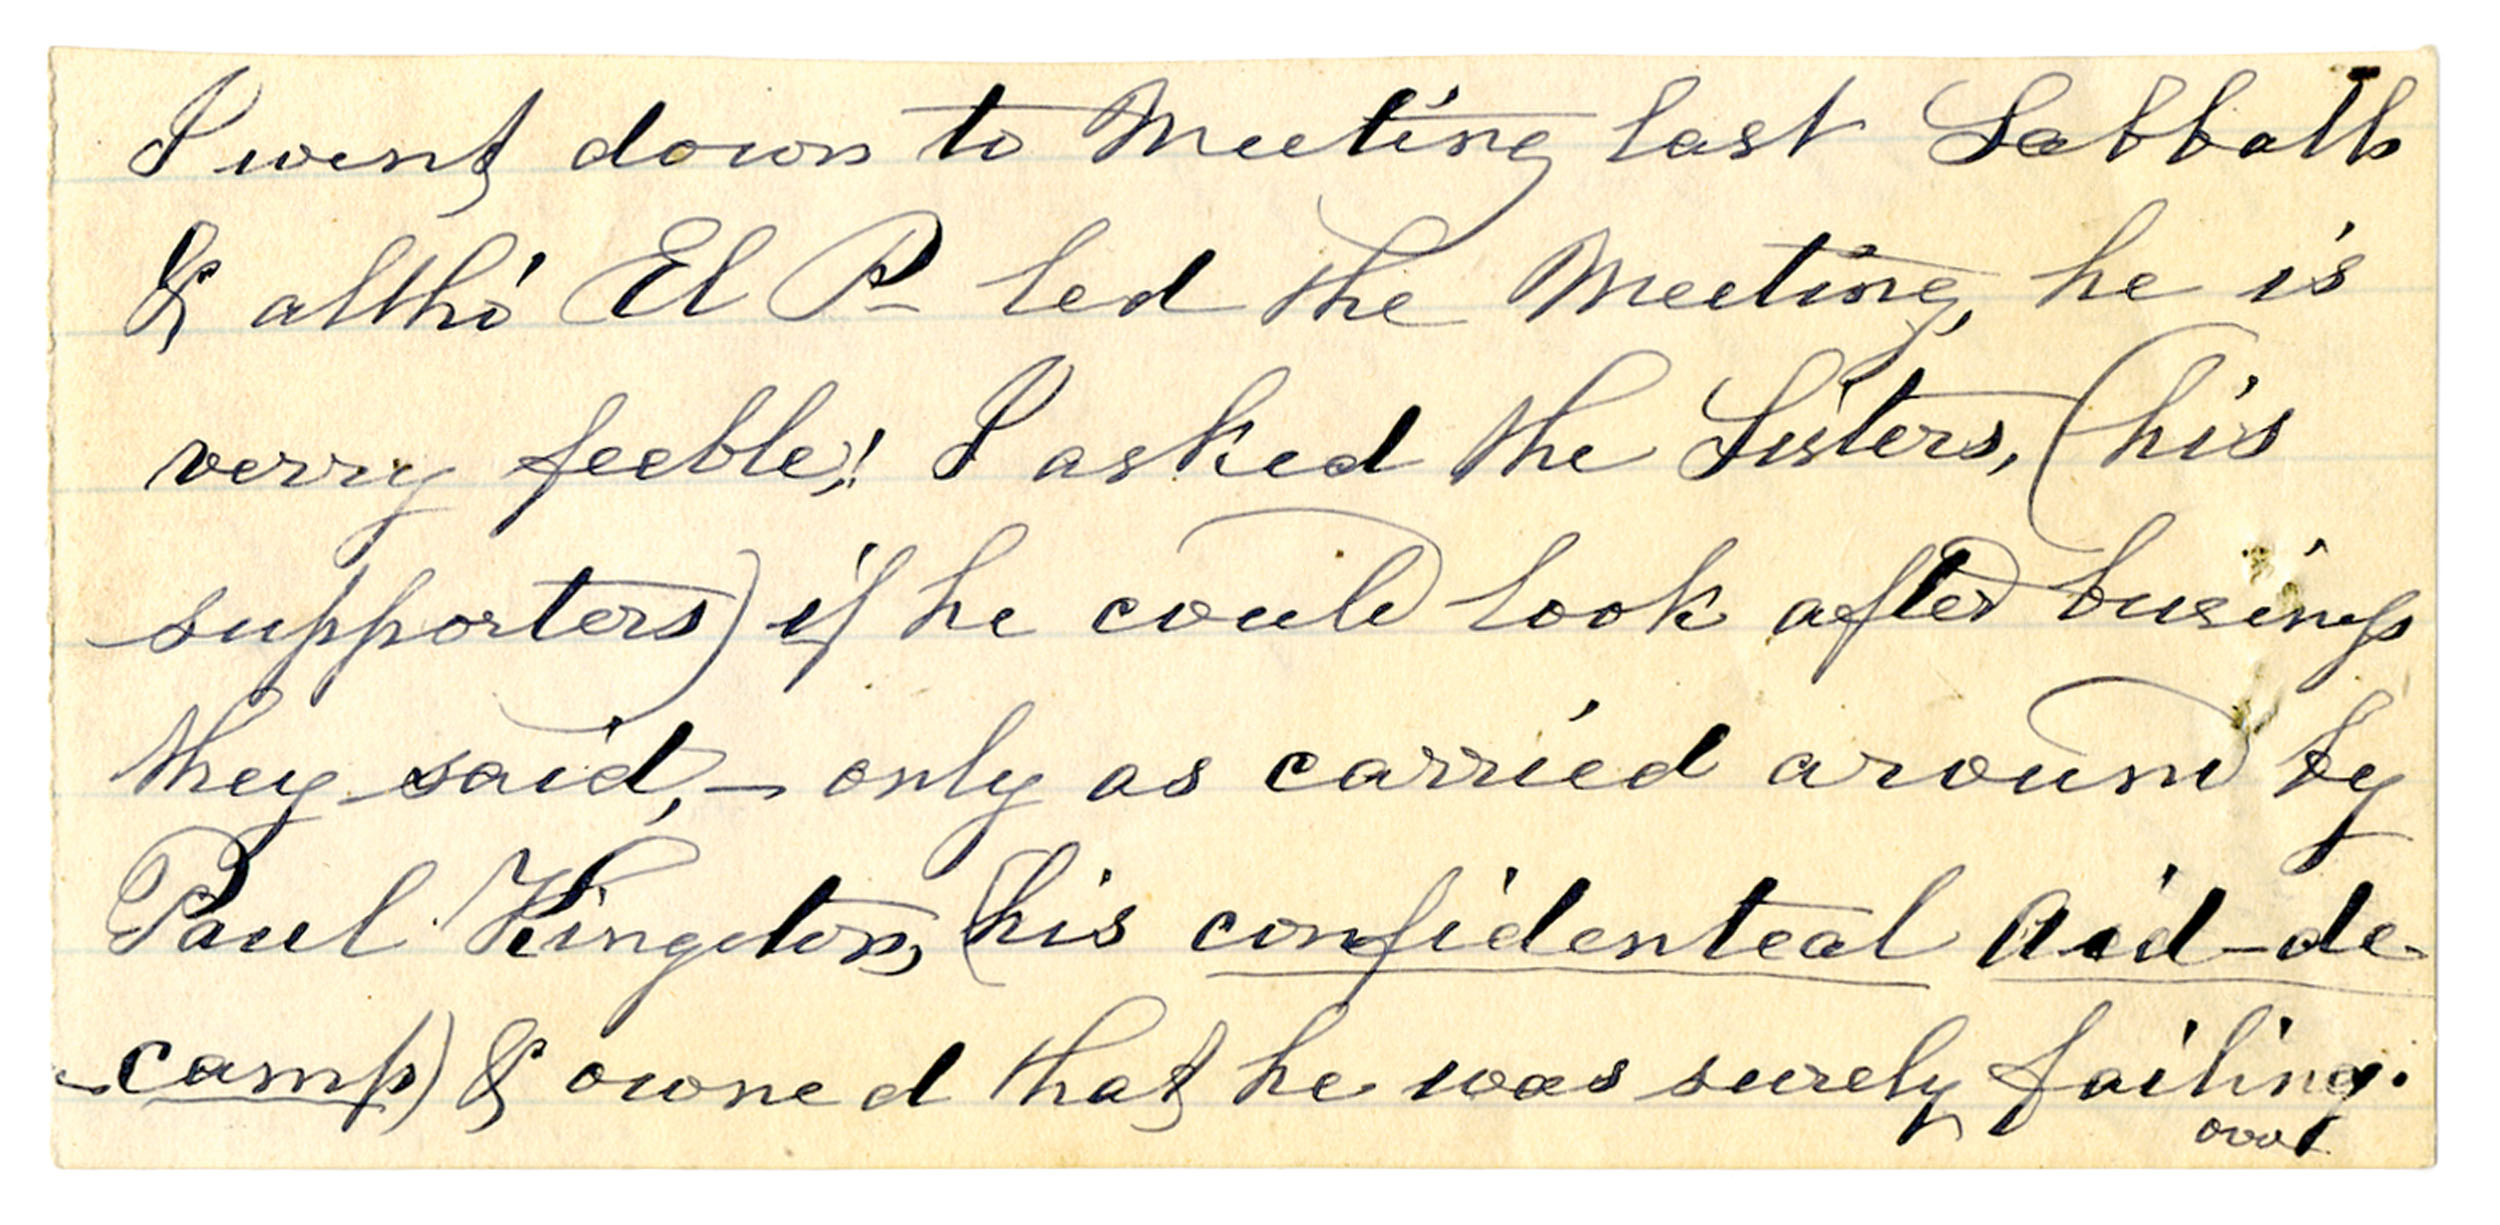 I went down to Meeting last Sabbath
& altho' El P- led the Meeting, he is
verry feeble;! I asked the Sisters, (his
supporters) if he could look after business
they said, – only as carried around by
Paul Kingston, (his confidenteal Aid-de-
-camp) & owned that he was surely failing.
over